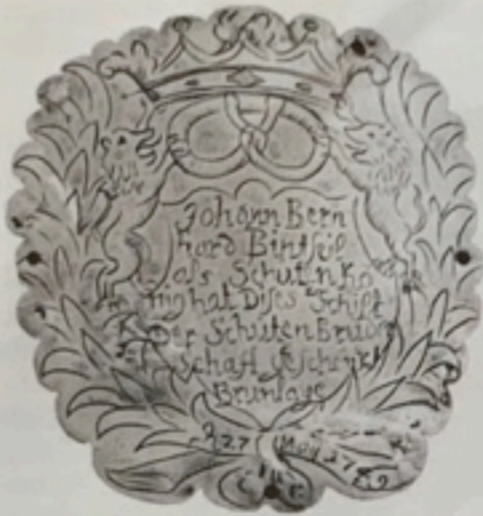 Johann Bern
hard Bintseil
als Schutenkö
nig hat Dises Schilt
Der Schuten Bruder
schaft Geschenkt
Brunlage
27 May